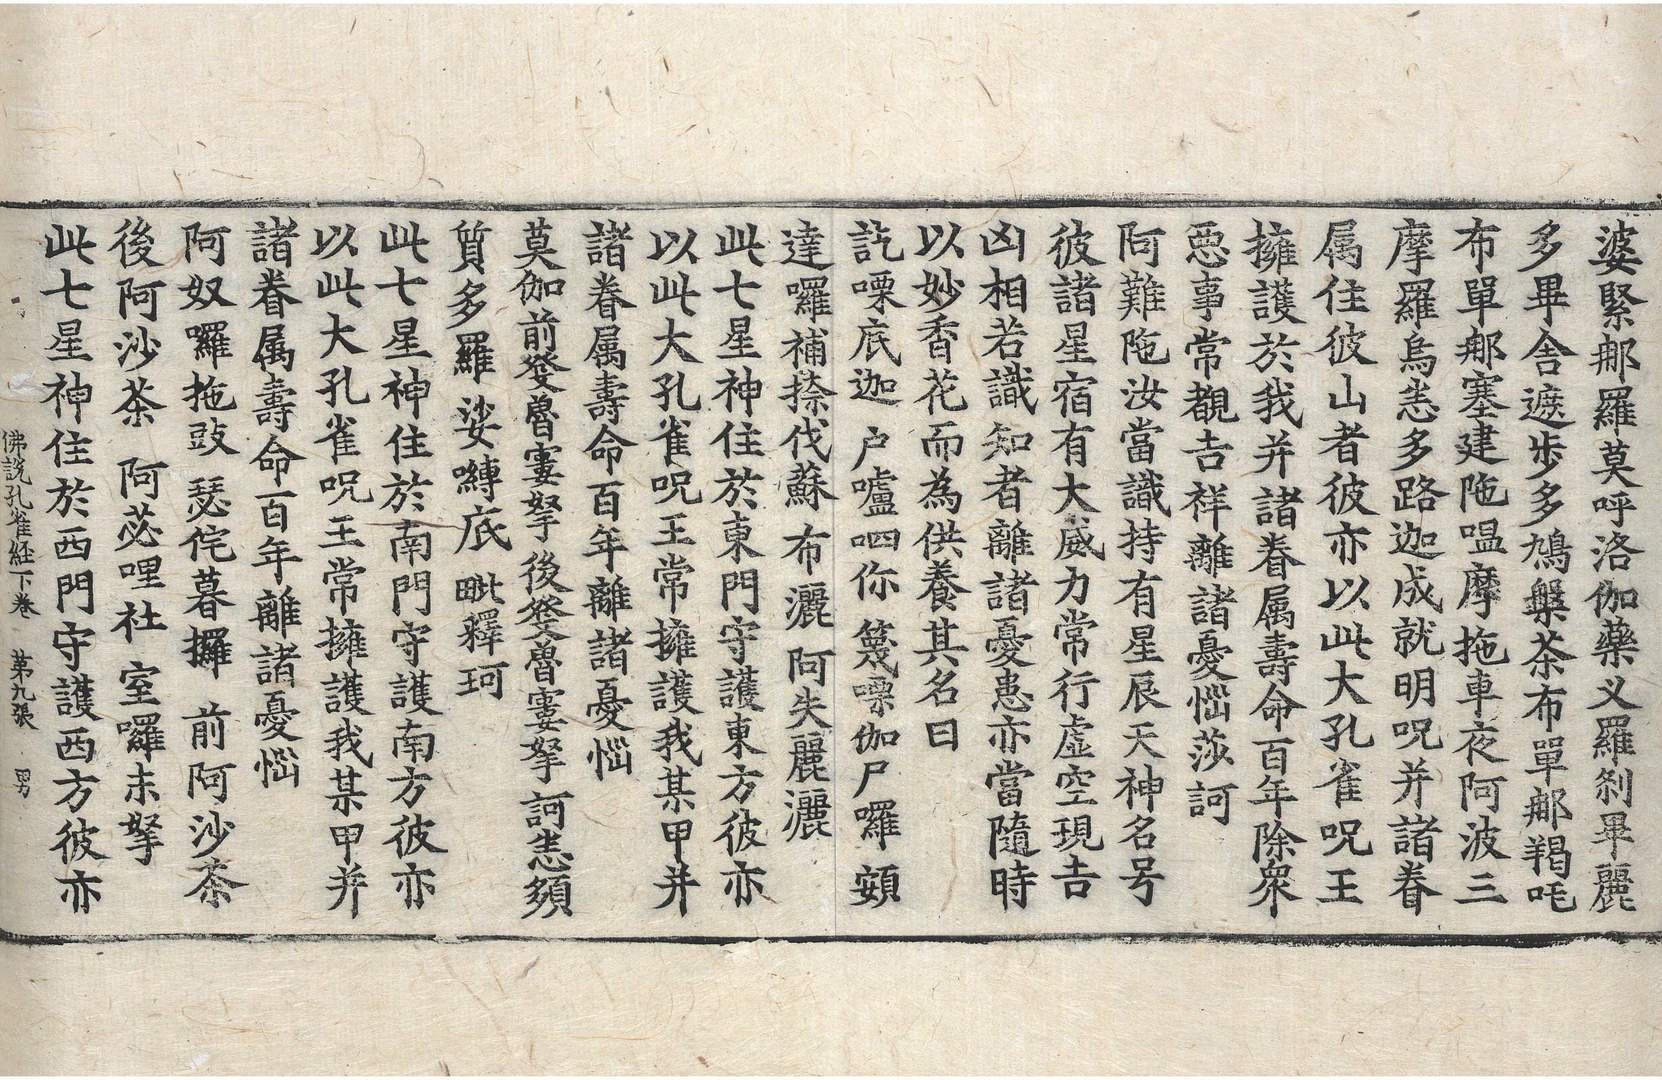 婆緊𨚗羅莫呼洛伽藥义羅刹畢麗
多畢舎遮步多鳩槃茶布單𨚗羯吒
布單𨚗塞建陁嗢摩拖車夜阿波三
摩羅烏恚多路迦成就明呪并諸眷
属住彼山者彼亦以此大孔雀呪王
擁護於我并諸眷属壽命百年除衆
惡事常覩吉祥離諸憂惱莎訶
阿難陁汝當識持有星辰天神名号
彼諸星宿有大威力常行虛空現吉
凶相若識知者離諸憂患亦當隨時
以妙香花而為供養其名曰
訖㗚底迦 户嚧呬你 篾㗚伽尸囉 頞
達囉補捺伐蘇 布灑 阿失麗灑
此七星神住於東門守護東方彼亦
以此大孔雀呪王常擁護我某甲并
諸眷属壽命百年離諸憂惱
莫伽 前發魯寠拏 後發魯寠拏 訶悉頞
質多羅 娑嚩底 毗釋珂
此七星神住於南門守護南方彼亦
以此大孔雀呪王常擁護我某甲并
諸眷属壽命百年離諸憂惱
阿奴囉拖 豉瑟侘 暮攞 前阿沙茶
後阿沙茶 阿苾哩社 室囉末拏
此七星神住於西門守護西方彼亦
佛說孔雀経下巻 第九張 男